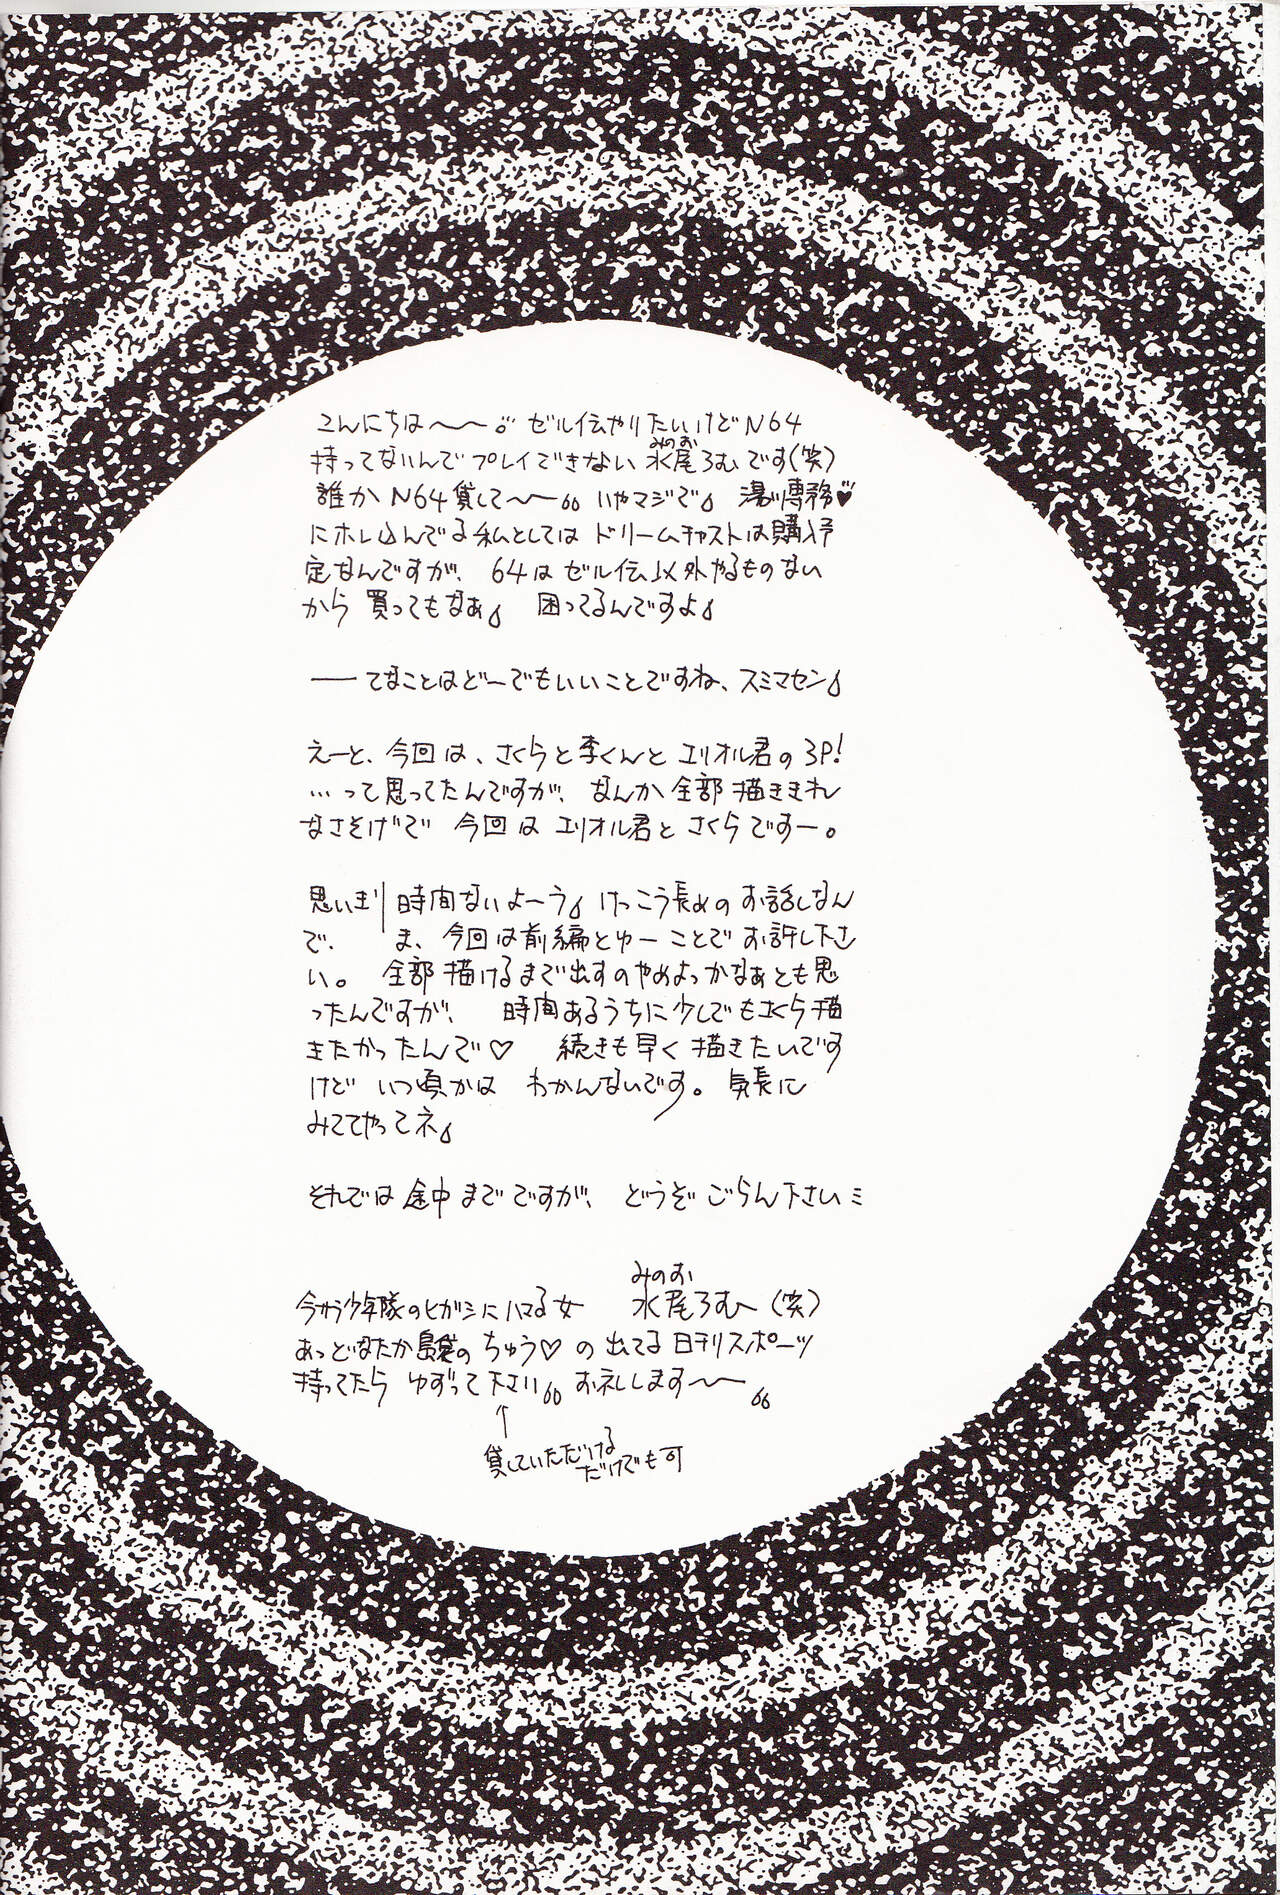 こんにちは〜〜 ゼル伝やりたいけどN64
持ってないんでプレイできない水尾ろむです(笑)
みのお
誰かN64貸して〜〜 いやマジで 湯川専務♥
にホレ込んでる私としてはドリームキャストは購入予
定なんですが、64はゼル伝以外やるものない
から買ってもなぁ 困ってるんですよ
――てなことはどーでもいいことですね、スミマセン
えーと、今回は、さくらと李くんとエリオル君の3P!
…って思ってたんですが、なんか全部描ききれ
なさそげで 今回はエリオル君とさくらですー。
思いきり時間ないよーう けっこう長めのお話しなん
で、 ま、今回は前編とゆーことでお許し下さ
い。 全部描けるまで出すのやめよっかなぁとも思
ったんですが、 時間あるうちに少しでもさくら描
きたかったんで♡ 続きも早く描きたいです
けど いつ頃かは わかんないです。気長に
みててやってネ
それでは途中までですが、どうぞごらん下さいミ
今さら少年隊のヒガシにハマる女
みのお
水尾ろむ〜(笑)
あっとどなたか のちゅう♡の出てる日刊スポーツ
持ってたら ゆずって下さい お礼します〜〜
↑
貸していただける
だけでも可